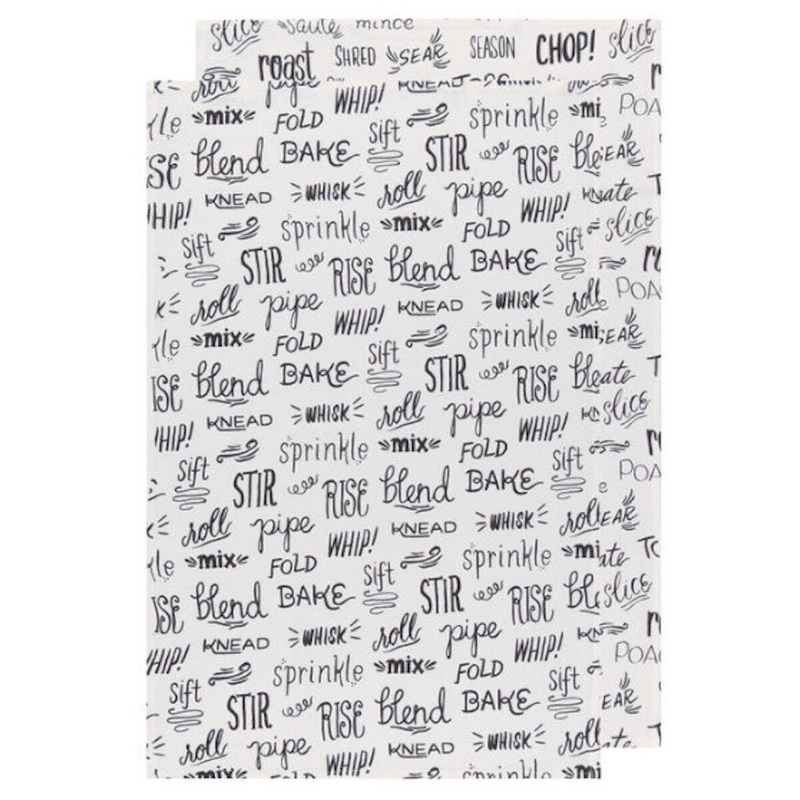 slice sauté mince
roast SHRED SEAR SEASON CHOP! slice
roll pipe KNEAD
WHIP! POA
mix FOLD sift sprinkle mi
SE blend BAKE STIR RISE ble EAR
KNEAD WHISK roll pipe WHIP! ate
HIP! sprinkle mix FOLD slice
sift STIR RISE blend BAKE sift
roll pipe KNEAD WHISK roll POA
WHIP!
mix FOLD sift sprinkle mi EAR
ISE blend BAKE STIR RISE ble ate
KNEAD WHISK roll pipe WHIP! slice
HIP! sprinkle mix FOLD
sift STIR RISE blend BAKE sift POA
roll pipe KNEAD WHISK roll EAR
WHIP!
mix FOLD sift sprinkle mi ate
ISE blend BAKE STIR RISE bl slice
KNEAD WHISK roll pipe WHIP!
HIP! sprinkle mix FOLD POA
sift STIR RISE blend BAKE sift EAR
roll pipe KNEAD WHISK roll ate
mix WHIP! sprinkle mi